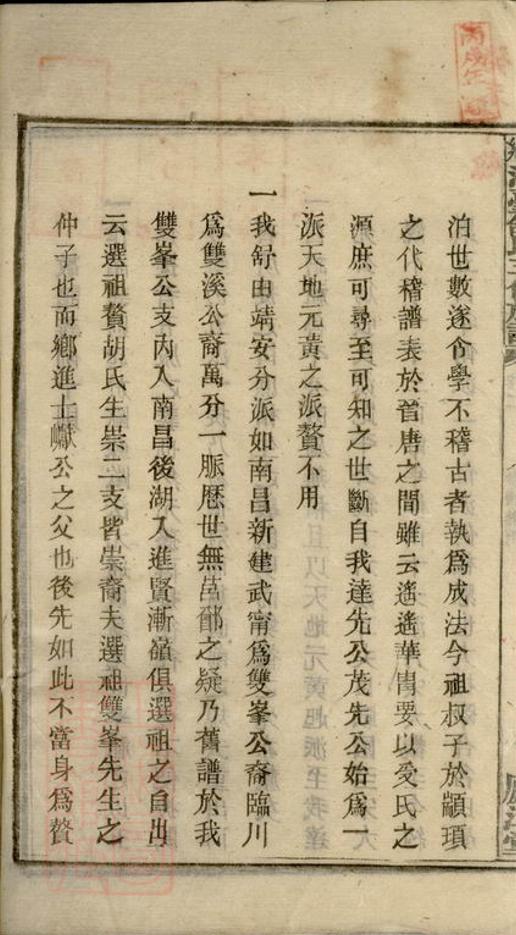 泊世數遂令學不稽古者執爲成法今祖叔子於顓頊
之代稽譜表於晉唐之間雖云遙遙華胄要以受氏之
源庶可尋至可知之世斷自我達先公茂先公始爲一
派天地元黃之派贅不用
一我舒由靖安分派如南昌新建武甯爲雙峯公裔臨川
爲雙溪公裔萬分一脈歴世無莒鄫之疑乃舊譜於我
雙峯公支內入南昌後湖入進賢漸嶺俱選祖之自出
云選祖贅胡氏生崇二支皆崇裔夫選祖雙峯先生之
仲子也而鄉進士巘公之父也後先如此不當身爲贅